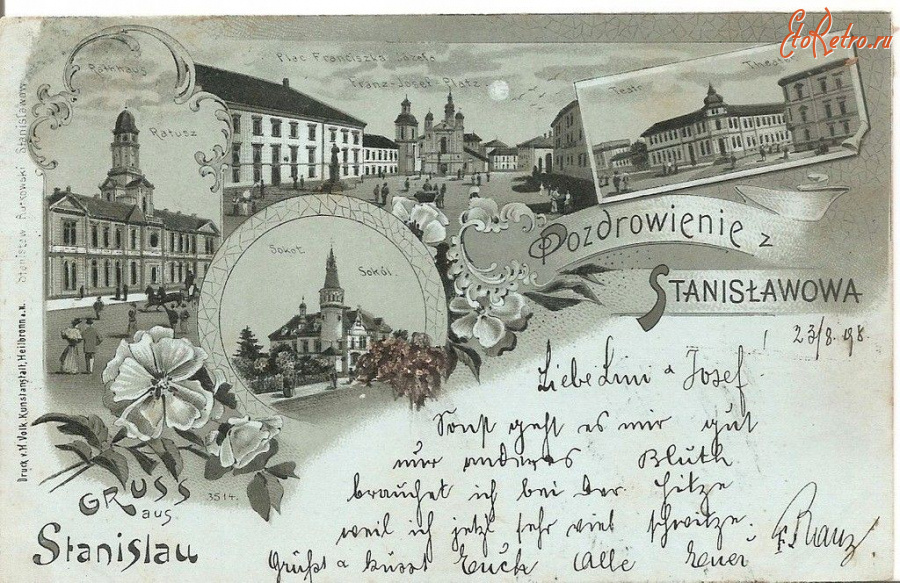 EtoRetro.ru
Rathhaus
Ratusz
Plac Franciszka Józefa
Franz-Josef Platz.
Teatr
Theater
Pozdrowienie z
STANISŁAWOWA
Sokoł.
Sokól.
Stanisław Rutkowski Stanisławów
Druck v. H. Volk, Kunstanstalt, Heilbronn a. N.
23/8. 98.
Liebe Lini & Josef
Sonst geht es mir gut
nur anderes Bluth
brauchet ich bei der Hitze
weil ich jetzt sehr viel schwitze.
Grüßt & küsst Euch Alle Euer
3514.
GRUSS
aus
Stanislau